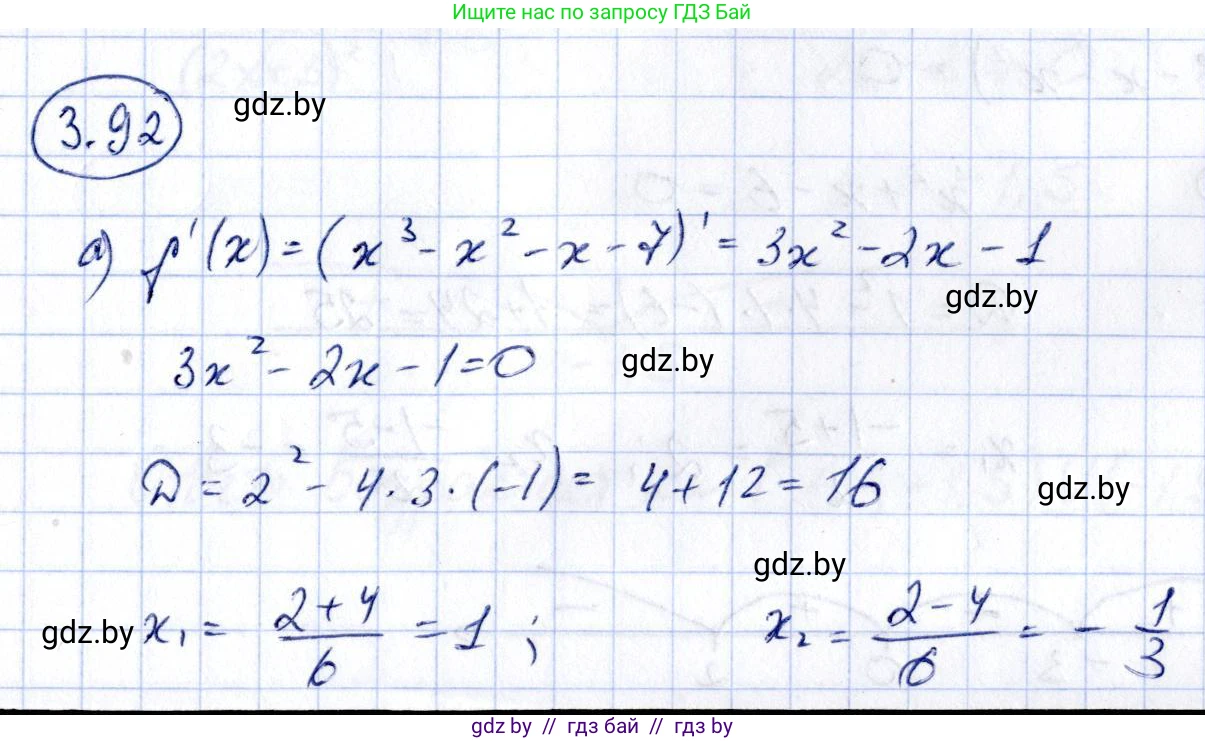 Ищите нас по запросу ГДЗ Бай
3.92 gdz.by
а) f'(x) = (x³ - x² - x - 7)' = 3x² - 2x - 1
gdz.by
3x² - 2x - 1 = 0 gdz.by
D = 2² - 4·3·(-1) = 4 + 12 = 16 gdz.by
gdz.by
gdz.by x₁ = (2+4)/6 = 1 ; x₂ = (2-4)/6 = - 1/3
gdz.by // гдз бай // гдз by